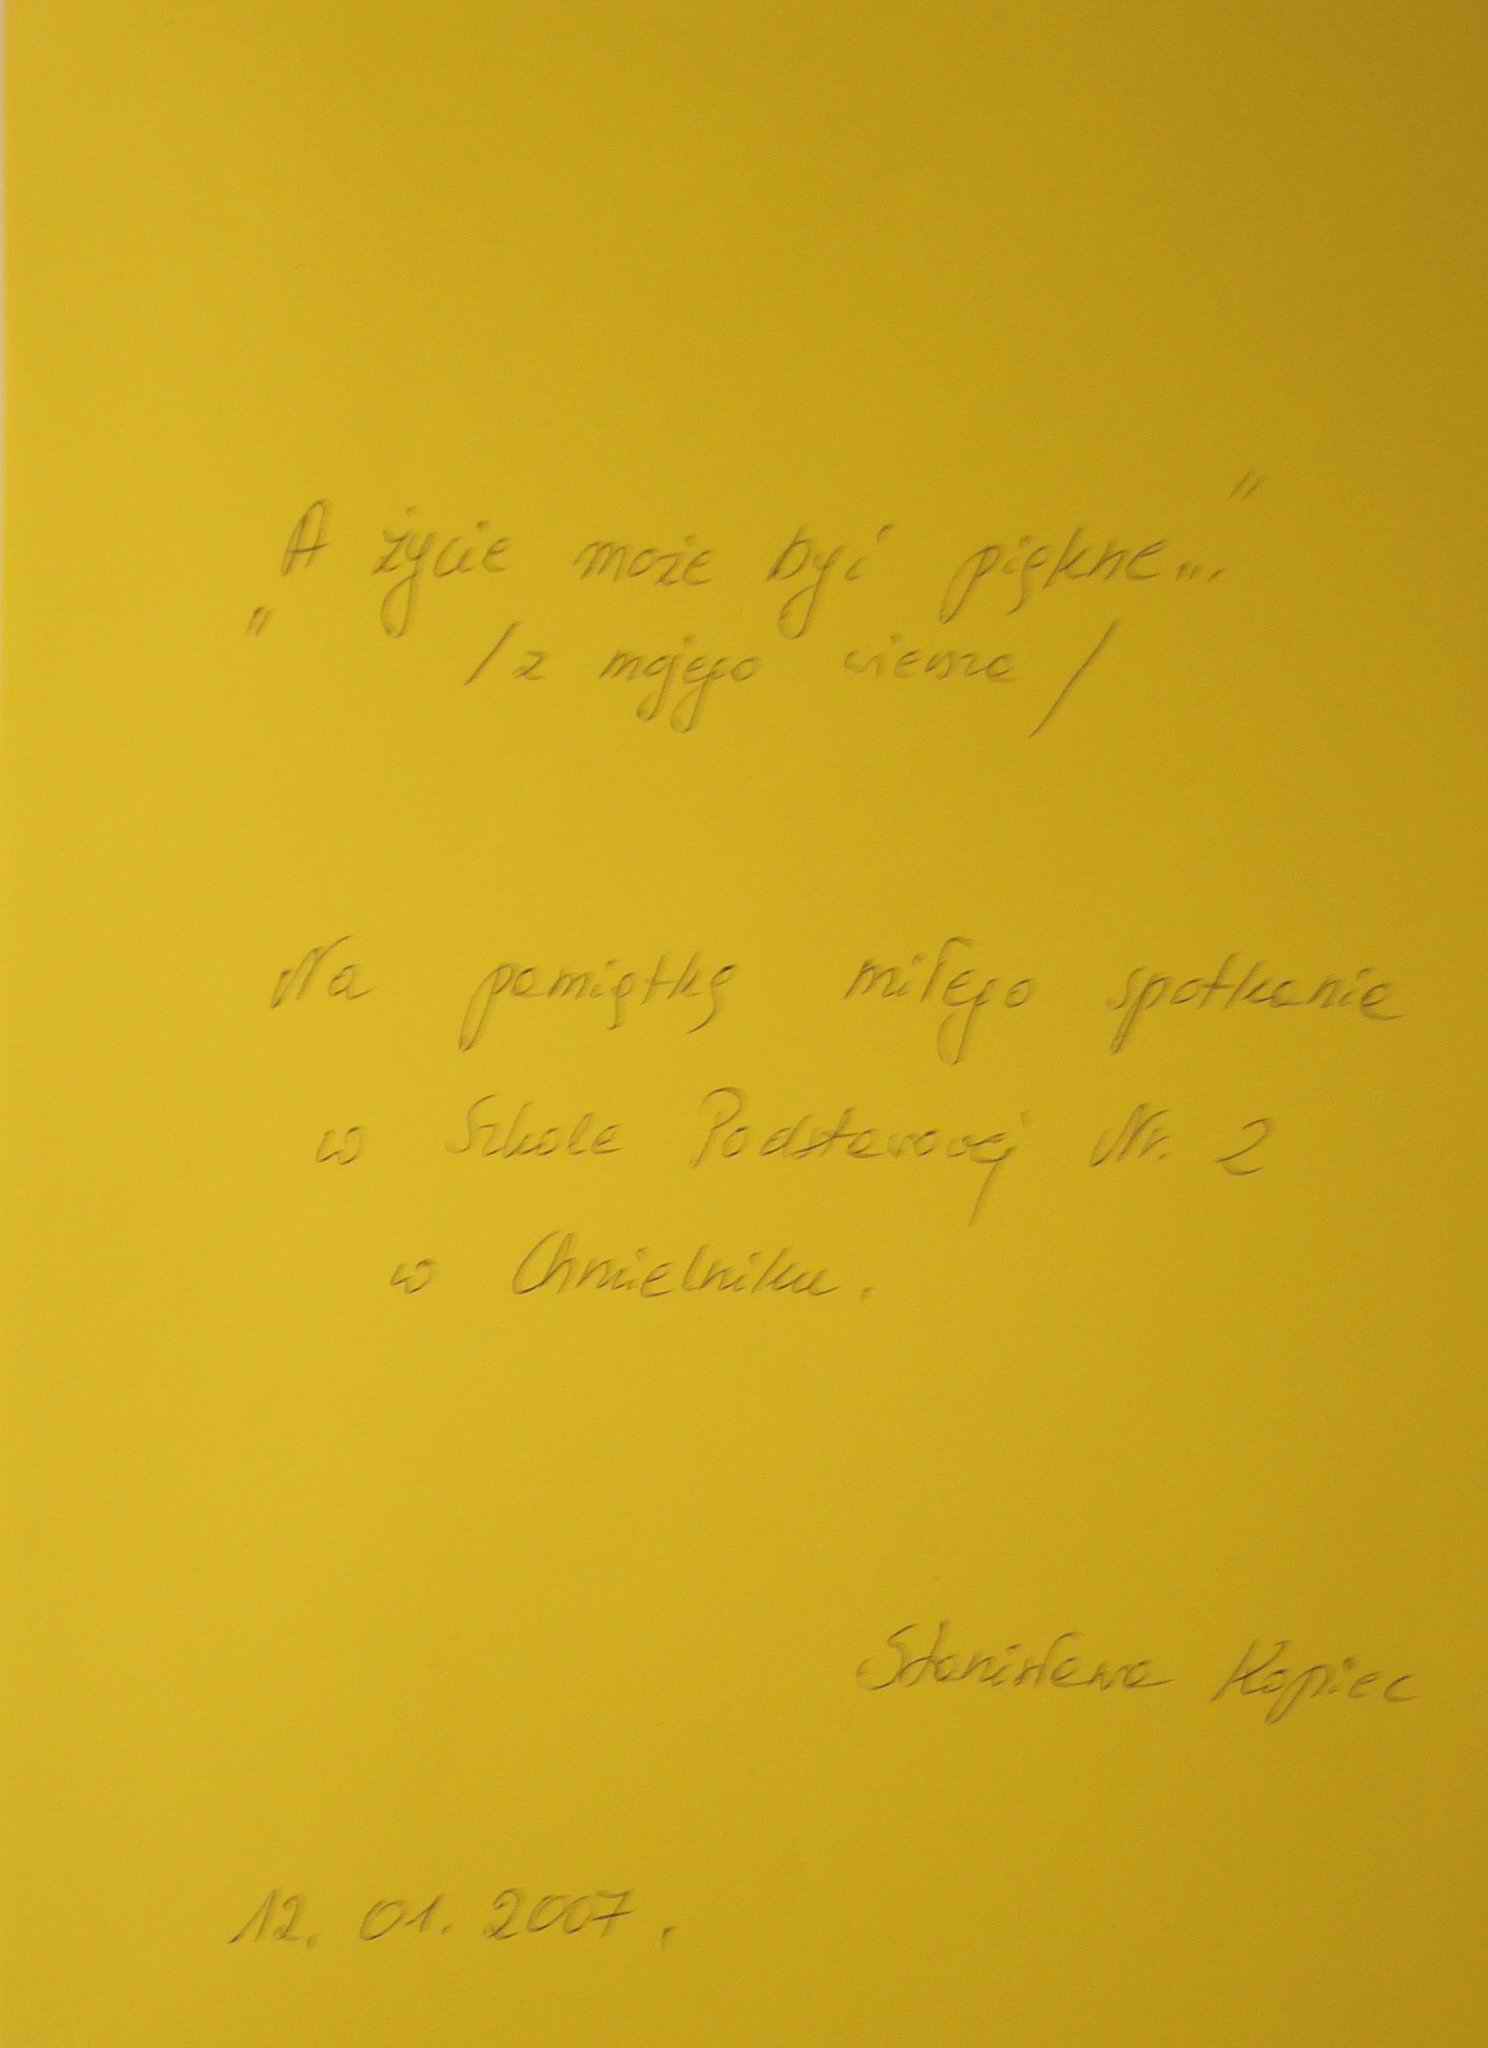 „A życie może być piękne..."
/z mojego wiersza/
Na pamiątkę miłego spotkania
w Szkole Podstawowej Nr. 2
w Chmielniku.
Stanisława Kopiec
12. 01. 2007.